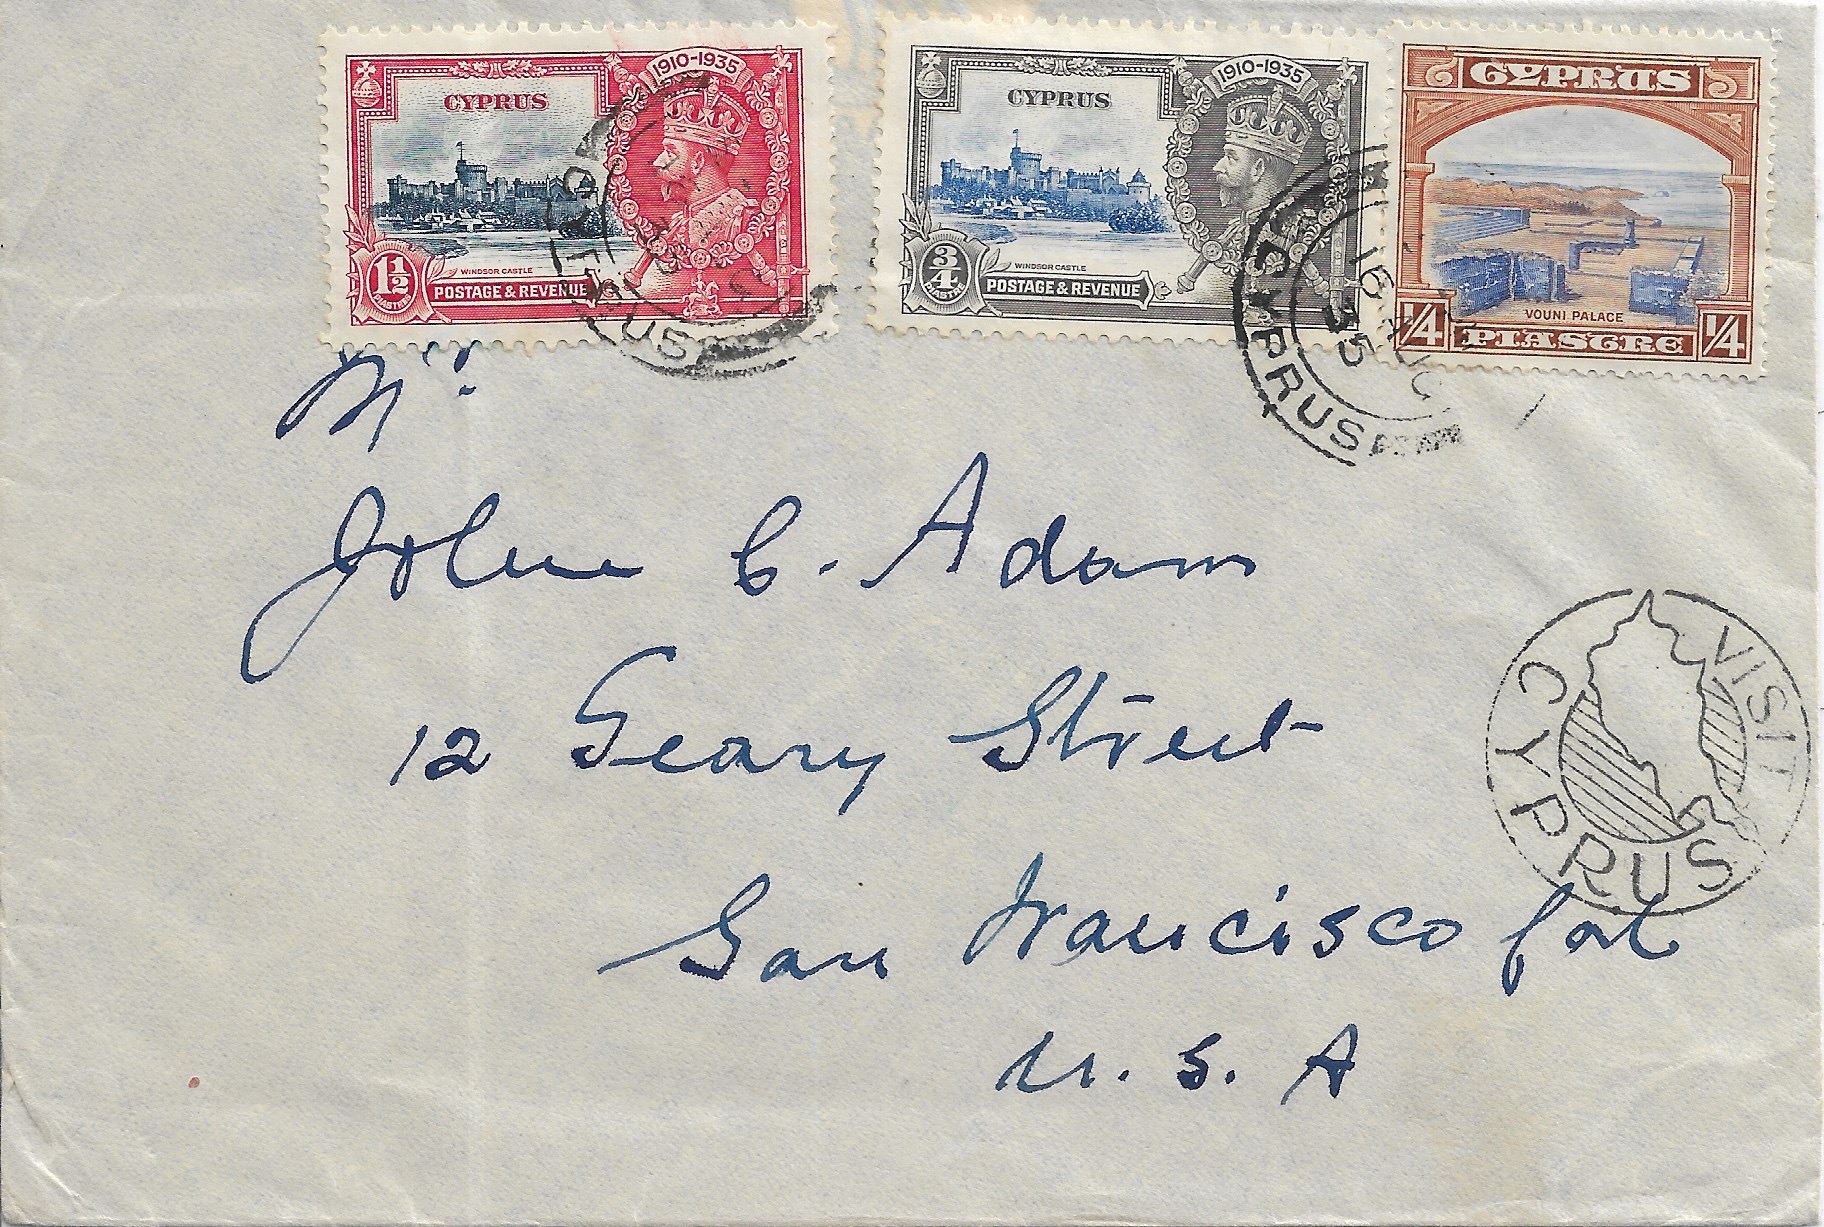 1910-1935
CYPRUS
WINDSOR CASTLE
1½
PIASTRES
POSTAGE & REVENUE
CYPRUS
1910-1935
CYPRUS
WINDSOR CASTLE
¾
PIASTRE
POSTAGE & REVENUE
16 AUG
35
CYPRUS
CYPRUS
VOUNI PALACE
¼ PIASTRE ¼
Mr.
John C. Adam
12 Geary Street
San Francisco Cal
U. S. A
VISIT
CYPRUS